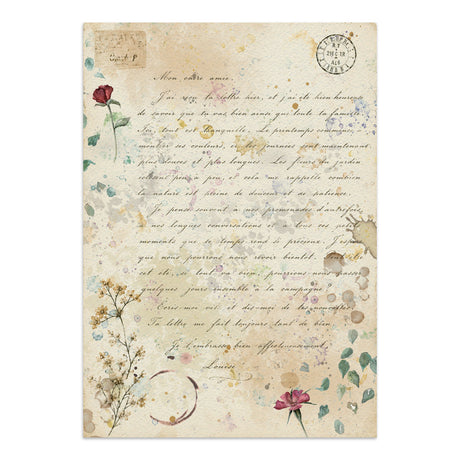 Mon chère amie,
J'ai reçu ta lettre hier, et j'ai été bien heureuse
de savoir que tu vas bien ainsi que toute ta famille.
Ici, tout est tranquille. Le printemps commence
montrer ses couleurs, et les journées sont maintenant
plus douces et plus longues. Les fleurs du jardin
peu à peu, et cela me rappelle combien
la nature est pleine de douceur et de patience.
Je pense souvent à nos promenades d'autrefois,
nos longues conversations et à tous ces petits
moments que le temps rend si précieux. J'espère
que nous pourrons nous revoir bientôt.
été, si tout va bien, pourrions-nous passer
quelques jours ensemble à la campagne?
Écris-moi vite et dis-moi de tes nouvelles.
Ta lettre me fait toujours tant de bien.
Je t'embrasse bien affectueusement,
Louise